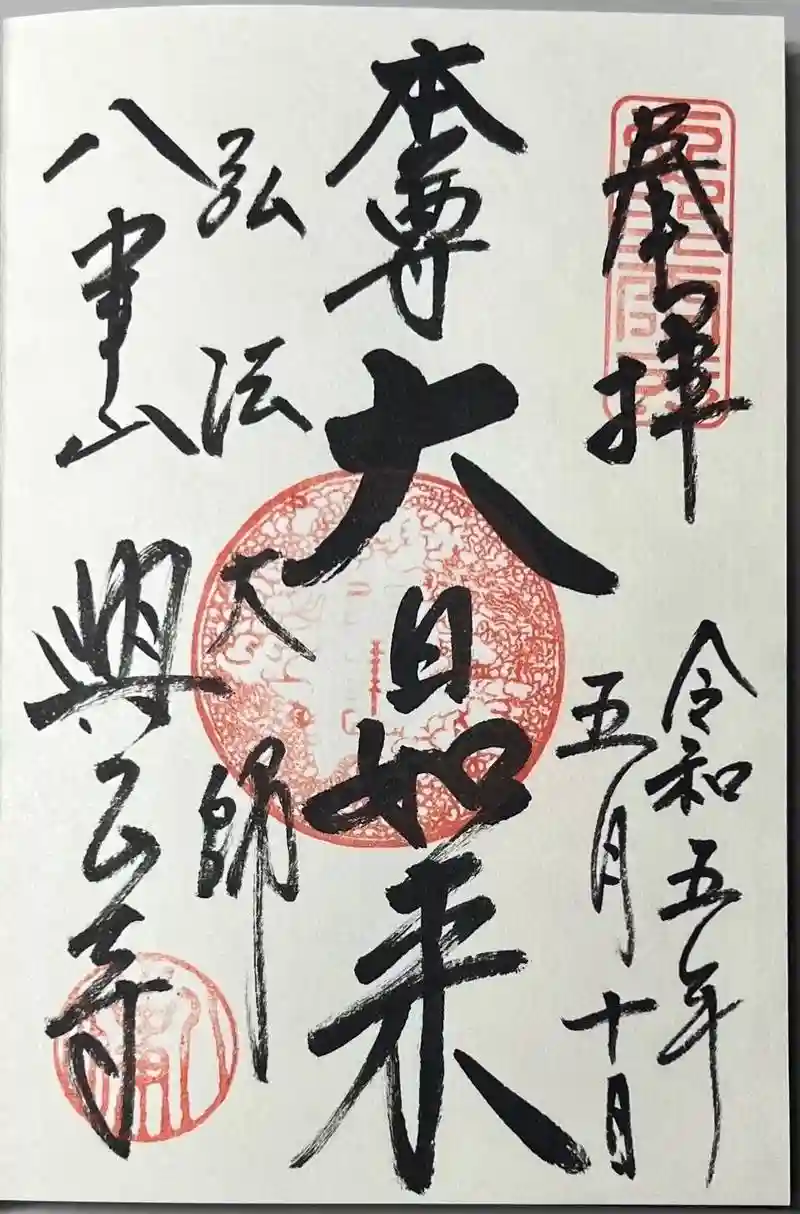 奉拝
令和五年
五月十日
本尊大日如来
弘法大師
八事山興正寺